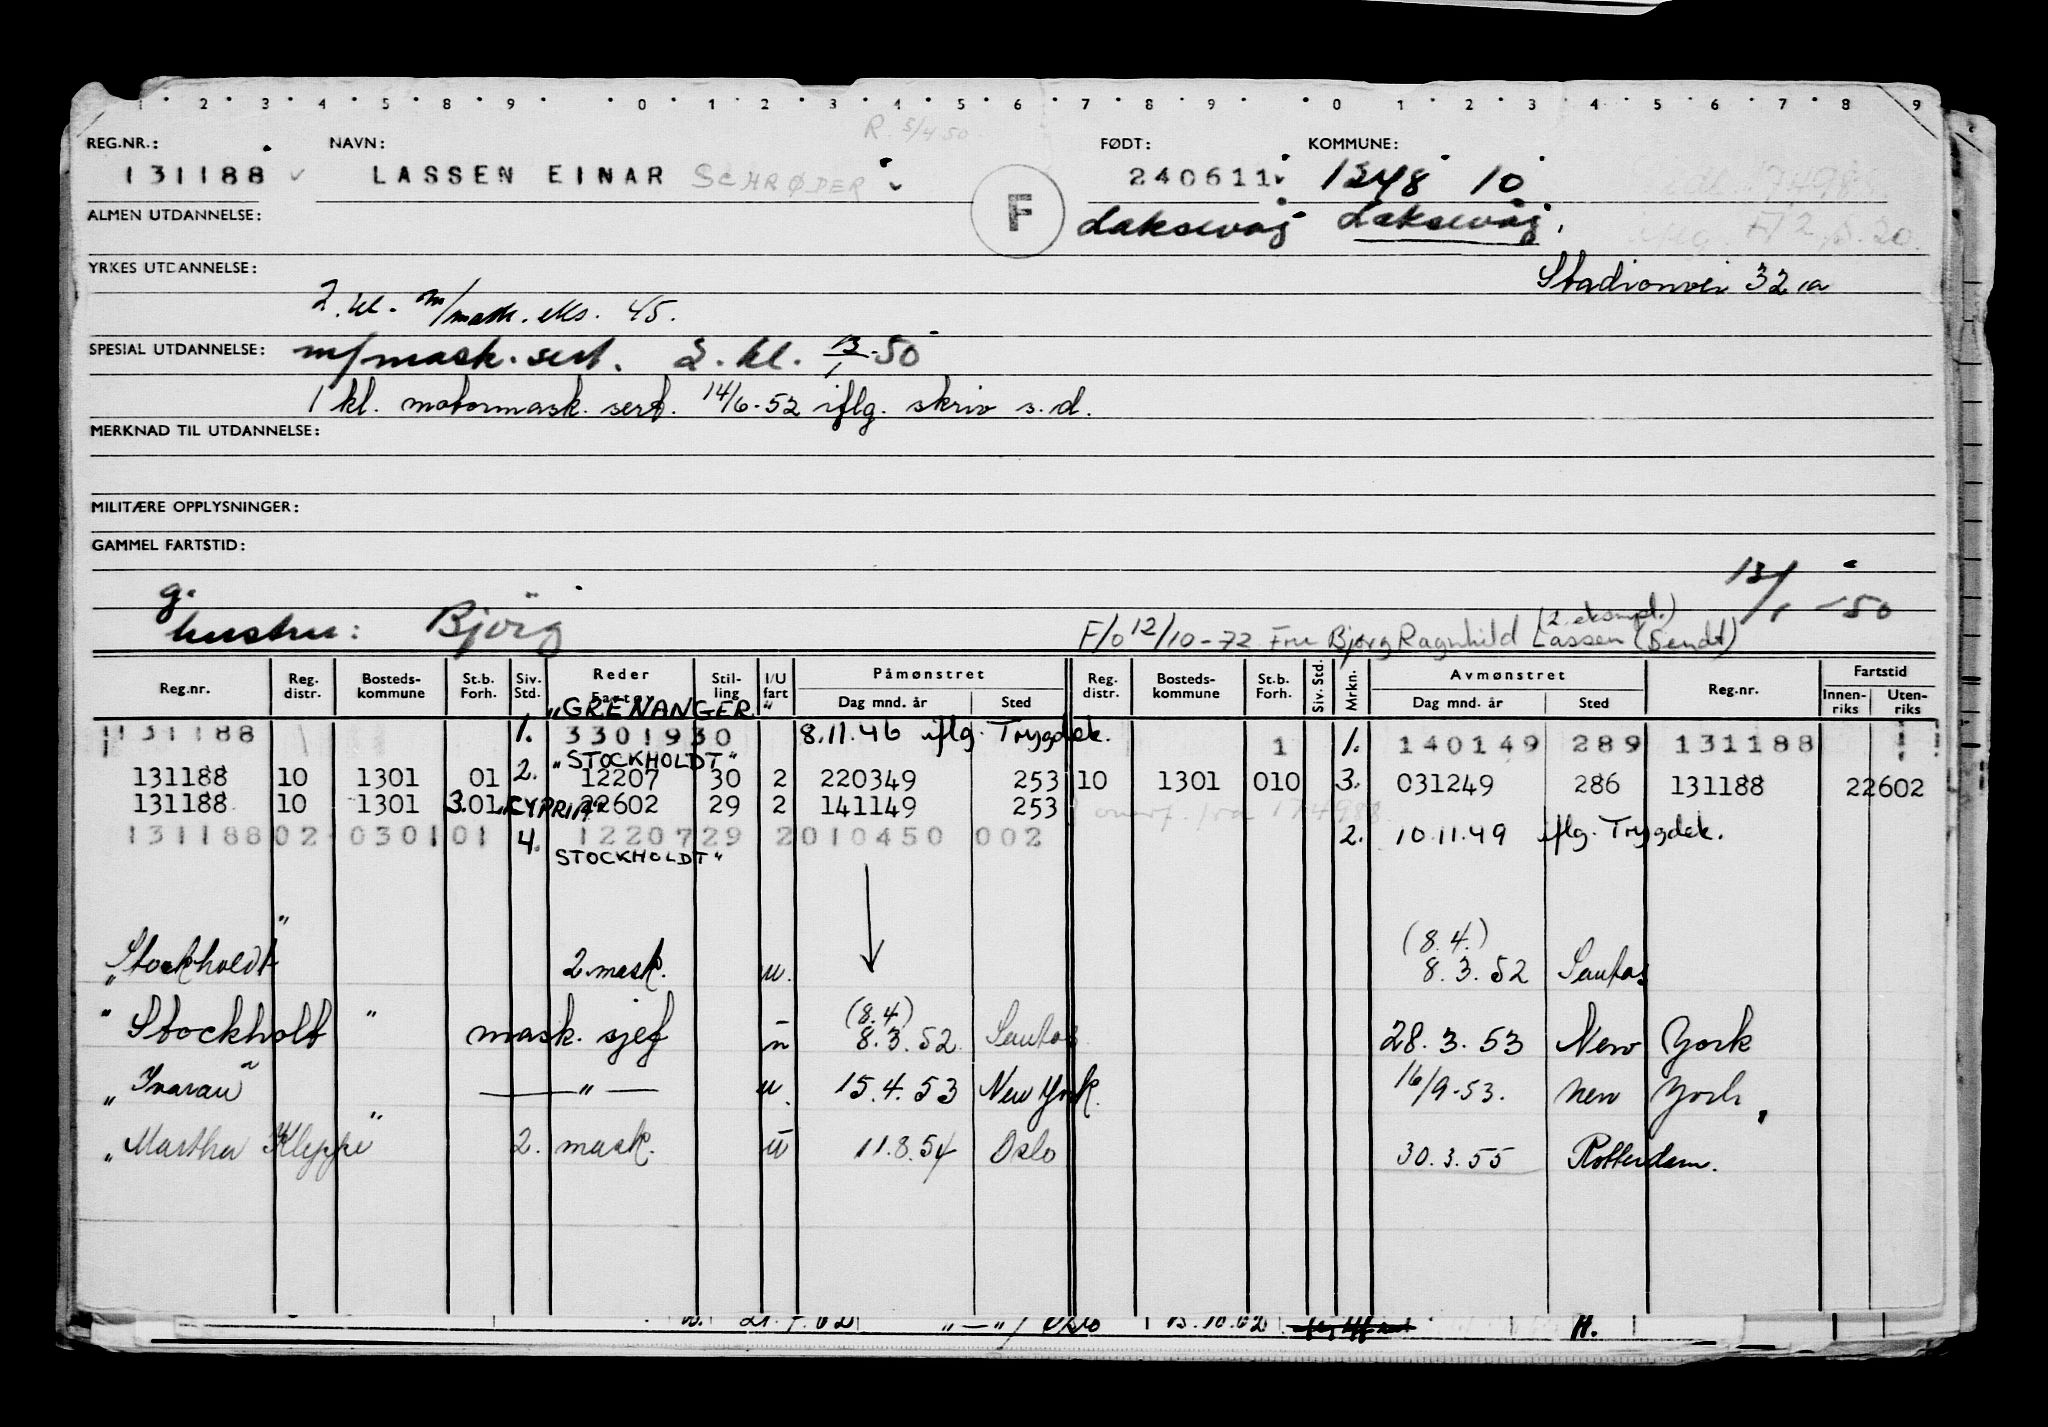 1 2 3 4 5 6 7 8 9 0 1 2 3 4 5 6 7 8 9 0 1 2 3 4 5 6 7 8 9
R. 5/4 50
REG.NR.: NAVN: FØDT: KOMMUNE:
131188 LASSEN EINAR SCHRØDER 240611 1248 10
F Laksevåg Laksevåg.
ALMEN UTDANNELSE:
YRKES UTDANNELSE: Stadionvei 32 a
2. kl. m/mask. eks. 45.
SPESIAL UTDANNELSE: m/mask. sert. 2. kl. 13/1-50
1 kl. motormask. sert. 14/6-52 iflg. skriv s.d.
MERKNAD TIL UTDANNELSE:
MILITÆRE OPPLYSNINGER:
GAMMEL FARTSTID:
g. 13/1-50
hustru: Bjørg F/o 12/10-72 Fru Bjørg Ragnhild Lassen (Sendt) (2. eksmpl.)
Reg.nr. Reg. distr. Bosteds-kommune St.b. Forh. Siv. Std. Reder Fartøy Stil-ling I/U fart Påmønstret Dag mnd. år Sted Reg. distr. Bosteds-kommune St.b. Forh. Siv. Std. Mrkn. Avmønstret Dag mnd. år Sted Reg.nr. Fartstid Innen-riks Uten-riks
"GRENANGER"
131188 1. 3301930 8.11.46 iflg. Trygdek. 1 1. 140149 289 131188
"STOCKHOLDT"
131188 10 1301 01 2. 12207 30 2 220349 253 10 1301 010 3. 031249 286 131188 22602
131188 10 1301 3. 01 "CYPRIA" 22602 29 2 141149 253 overf. fra 174988
131188 02 0301 01 4. 12207 29 2 010450 002 2. 10.11.49 iflg. Trygdek.
STOCKHOLDT"
"Stockholdt" 2. mask. u. (8.4.) 8.3.52 Santos
"Stockholt" mask. sjef u (8.4) 8.3.52 Santos 28.3.53 New York
"Ivaran" — " — u. 15.4.53 New York. 16/9-53. New York.
"Martha Kleppe" 2. mask. u 11.8.54 Oslo 30.3.55 Rotterdam.
"—"/ Oslo 13.10.62 H.